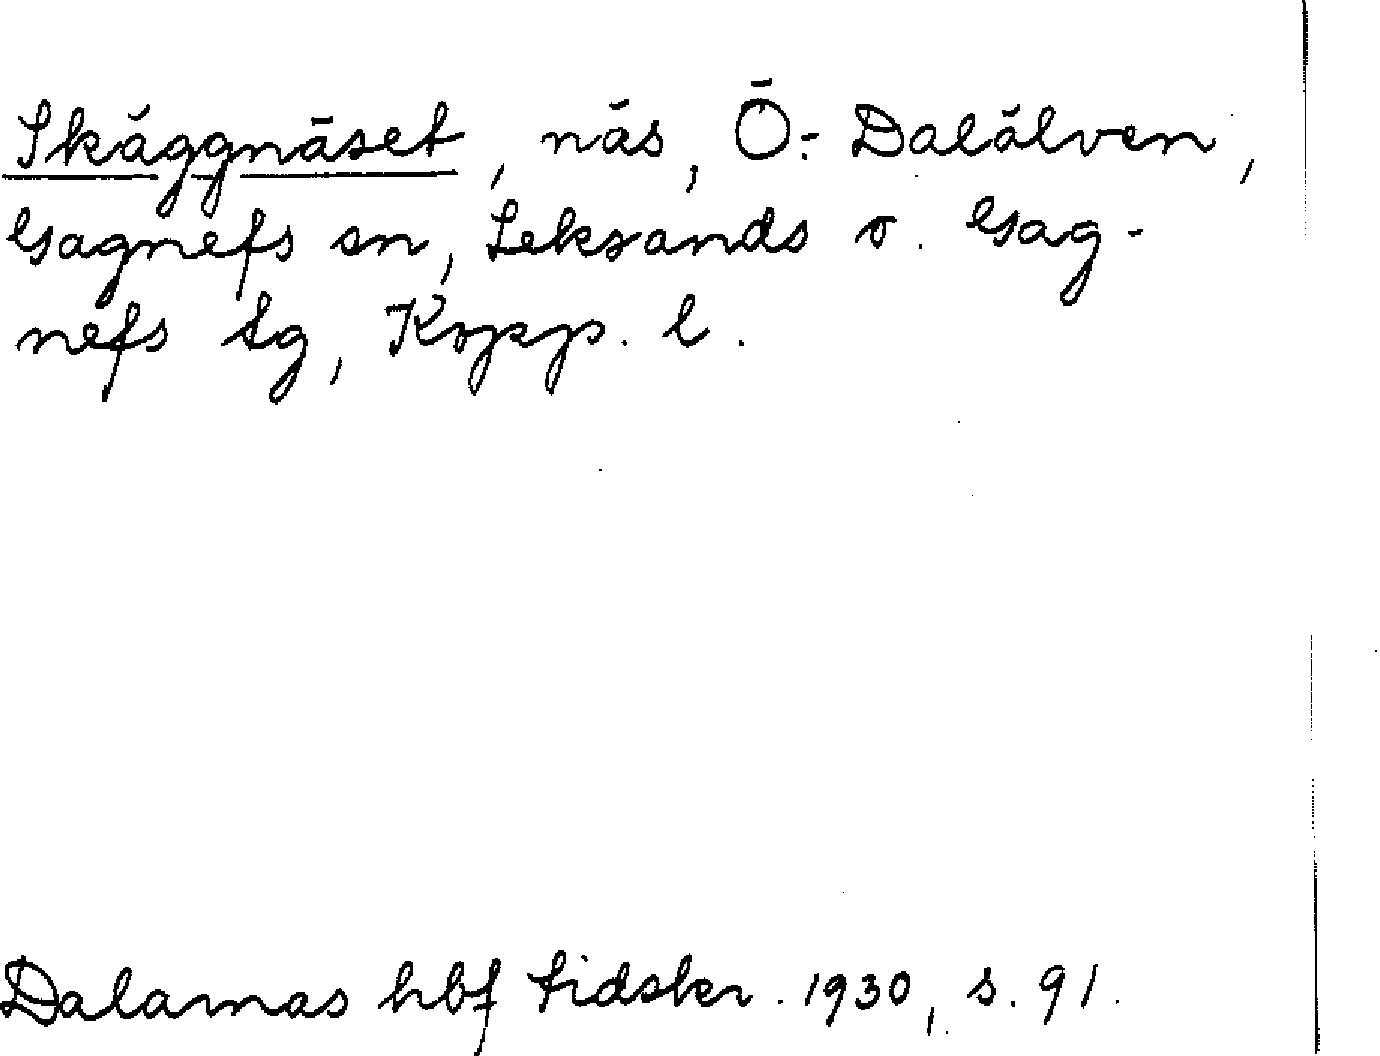 Skäggnäset, näs, Ö: Dalälven,
Gagnefs sn, Leksands o. Gag-
nefs tg, Kopp. l.
Dalarnas hbf tidskr. 1930, s. 91.